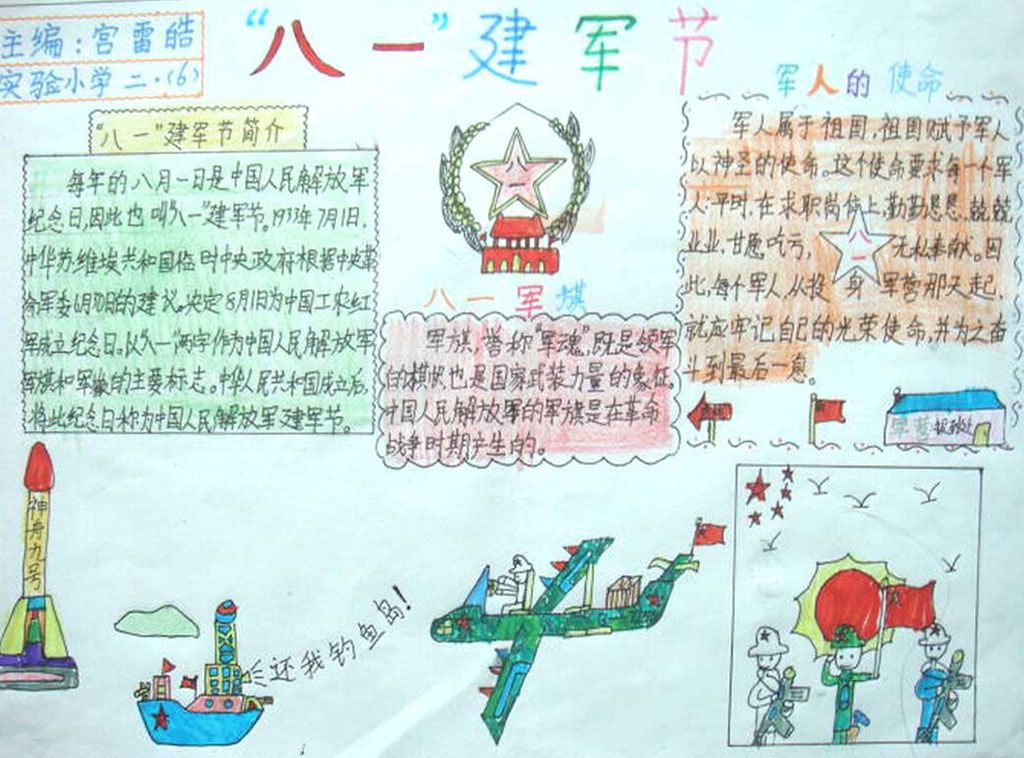 主编:宫雷皓
实验小学 二·(6)
“八一”建军节
“八一”建军节简介
每年的八月一日是中国人民解放军
纪念日,因此也叫“八一”建军节。1933年7月1日,
中华苏维埃共和国临时中央政府根据中央革
命军委6月30日的建议。决定8月1日为中国工农红
军成立纪念日。以“八一”两字作为中国人民解放军
军旗和军徽的主要标志。中华人民共和国成立后,
将此纪念日称为中国人民解放军建军节。
八
一
八一军旗
军旗,誉称“军魂”,既是领军
的旗帜也是国家武装力量的象征。
中国人民解放军的军旗是在革命
战争时期产生的。
军人的使命
军人属于祖国,祖国赋予军人
以神圣的使命。这个使命要求每一个军
人:平时,在求职岗位上,勤勤恳恳,兢兢
业业,甘愿吃亏,无私奉献。因
八
一
此,每个军人,从投身军营那天起,
就应牢记自己的光荣使命,并为之奋
斗到最后一息。
神舟九号
还我钓鱼岛!